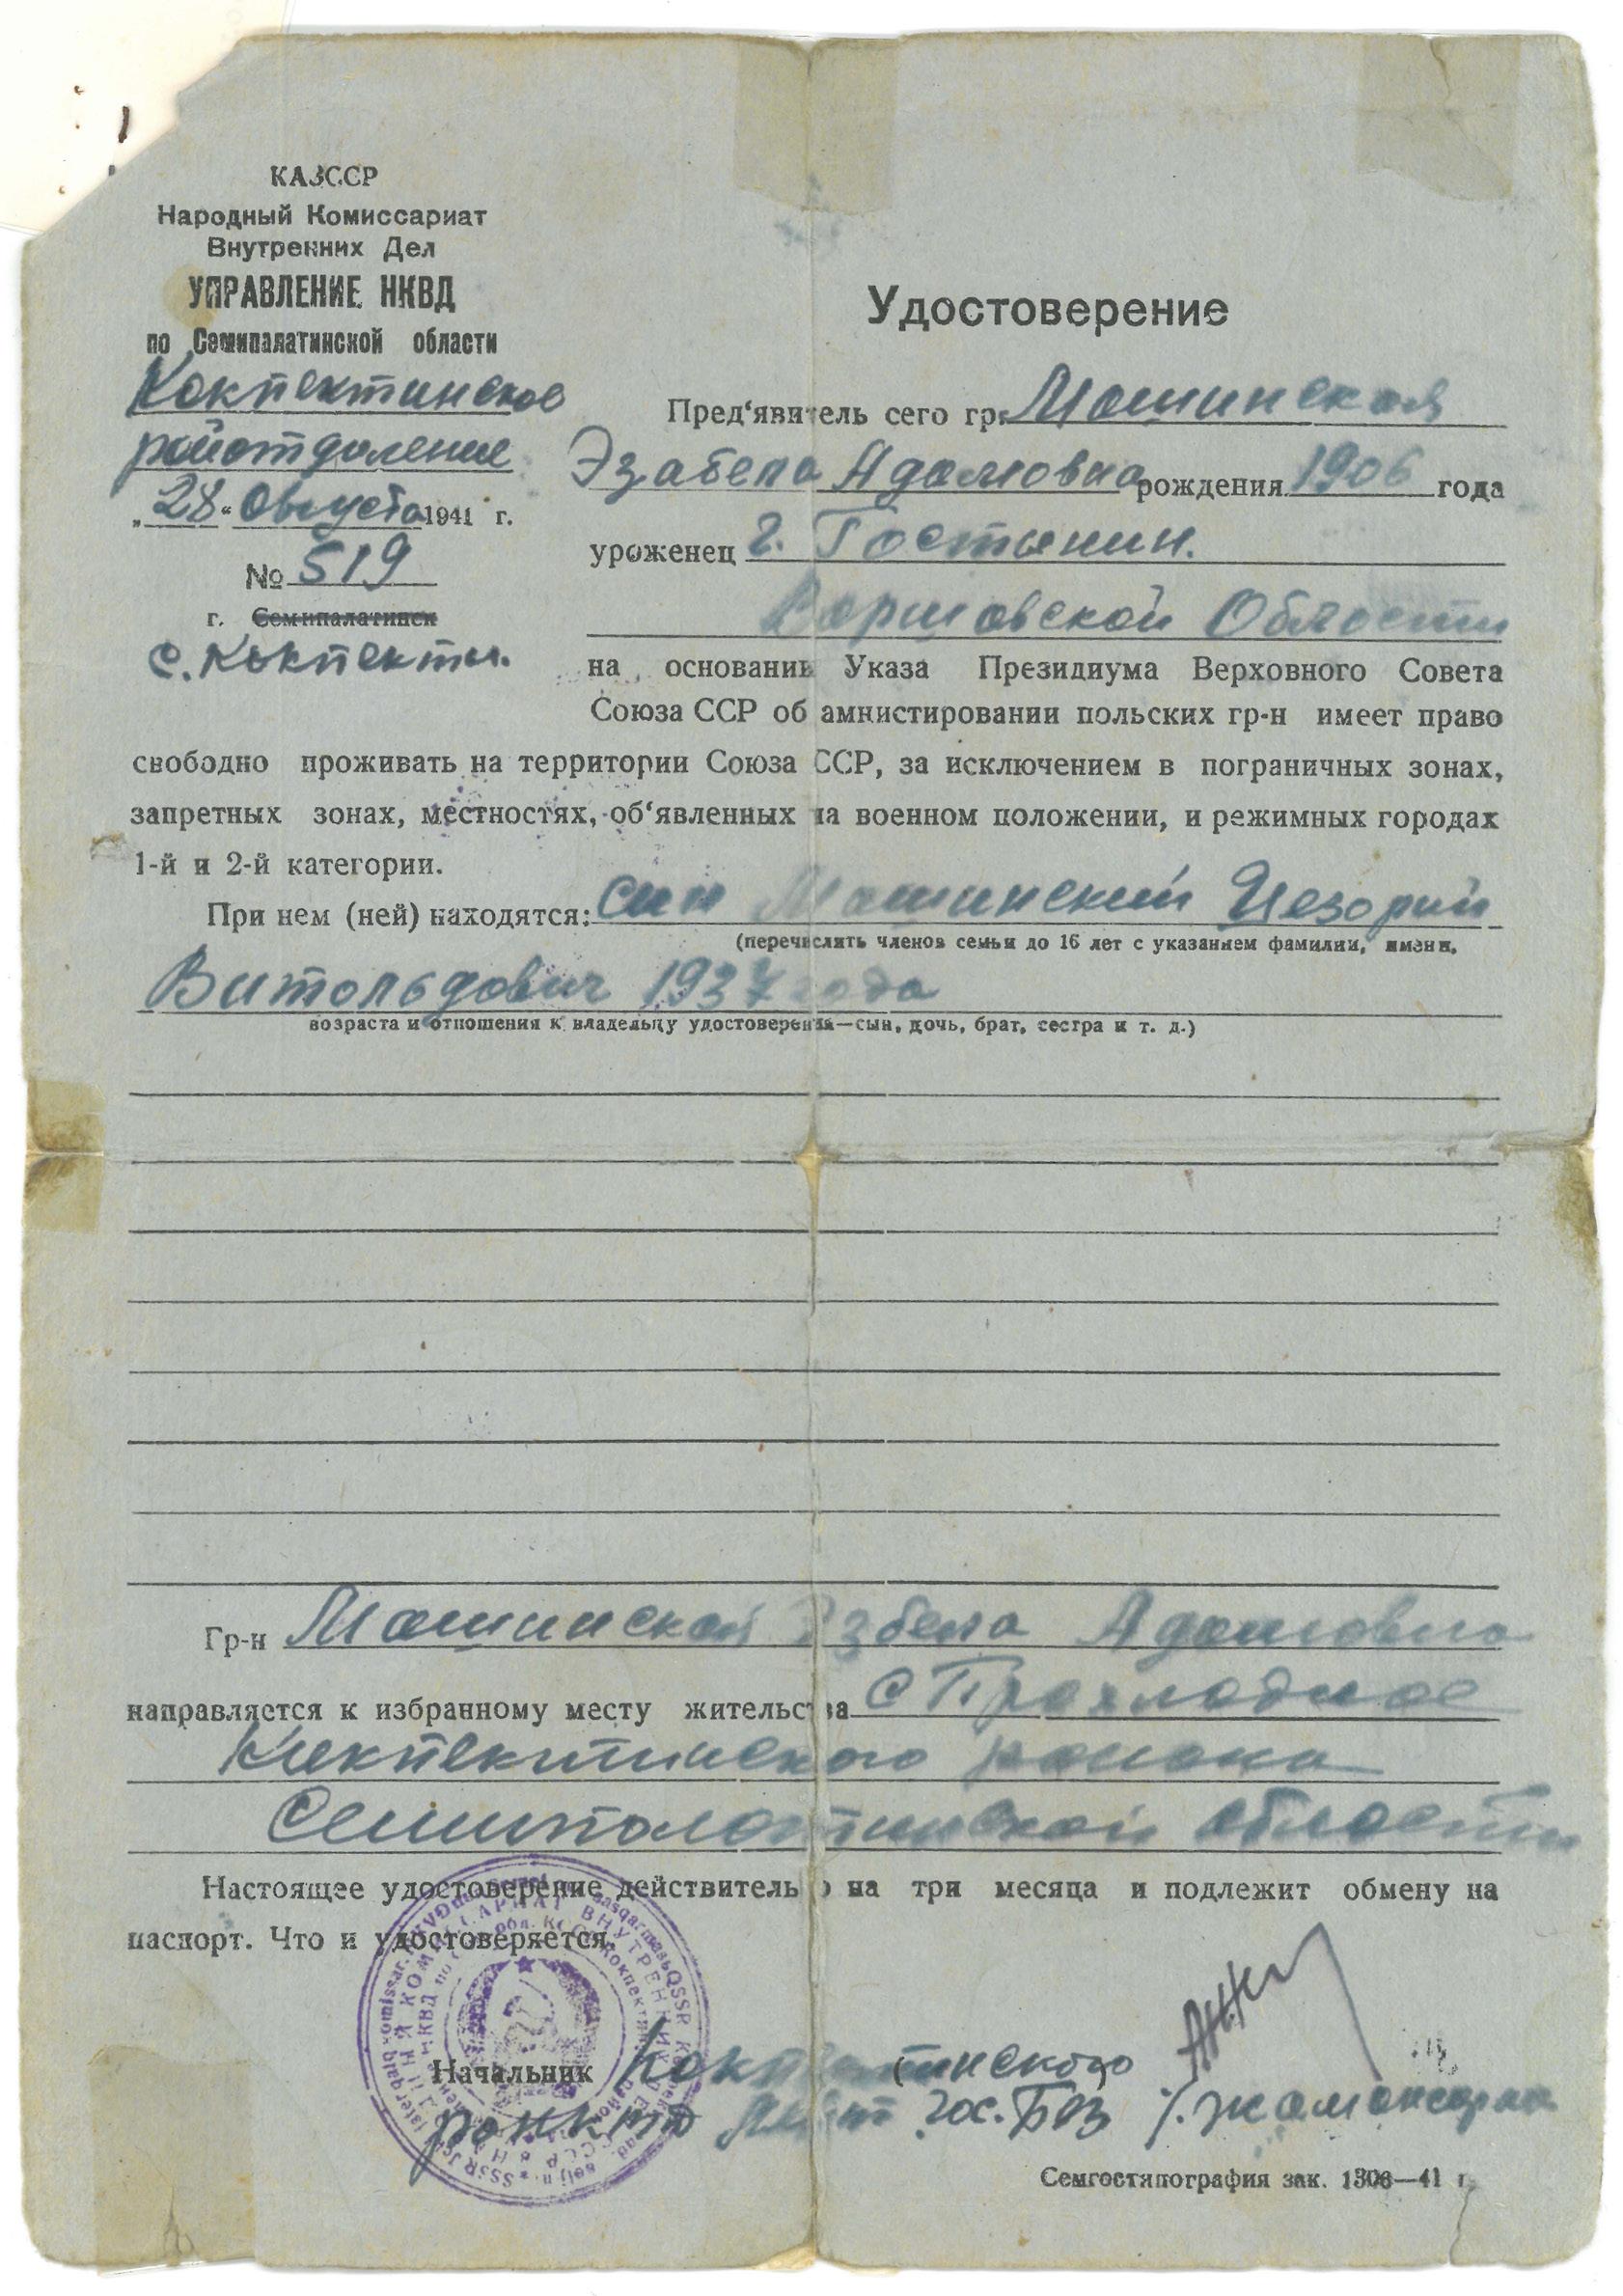 КАЗССР
Народный Комиссариат
Внутренних Дел
УПРАВЛЕНИЕ НКВД
по Семипалатинской области
Кокпектинское
райотделение
„28“ Августа 1941 г.
№ 519
г. Семипалатинск
с. Кокпекты.
Удостоверение
Пред‘явитель сего гр. Машинская
Эзабела Адамовна рождения 1906 года
уроженец г. Гостынин.
Варшавской Области
на основании Указа Президиума Верховного Совета
Союза ССР об амнистировании польских гр-н имеет право
свободно проживать на территории Союза ССР, за исключением в пограничных зонах,
запретных зонах, местностях, об‘явленных на военном положении, и режимных городах
1-й и 2-й категории.
При нем (ней) находятся: син Машинский Цезарий
(перечислить членов семьи до 16 лет с указанием фамилии, имени,
Витольдович 1937 года
возраста и отношения к владельцу удостоверения—сын, дочь, брат, сестра и т. д.)
Гр-н Машинская Эзбела Адамовна
направляется к избранному месту жительства с Прохладное
Кокпектинского района
Семипалатинской области
Настоящее удостоверение действительно на три месяца и подлежит обмену на
паспорт. Что и удостоверяется.
Начальник Кокпектинского
гос. Без
Семгостипография зак. 1306—41 г.